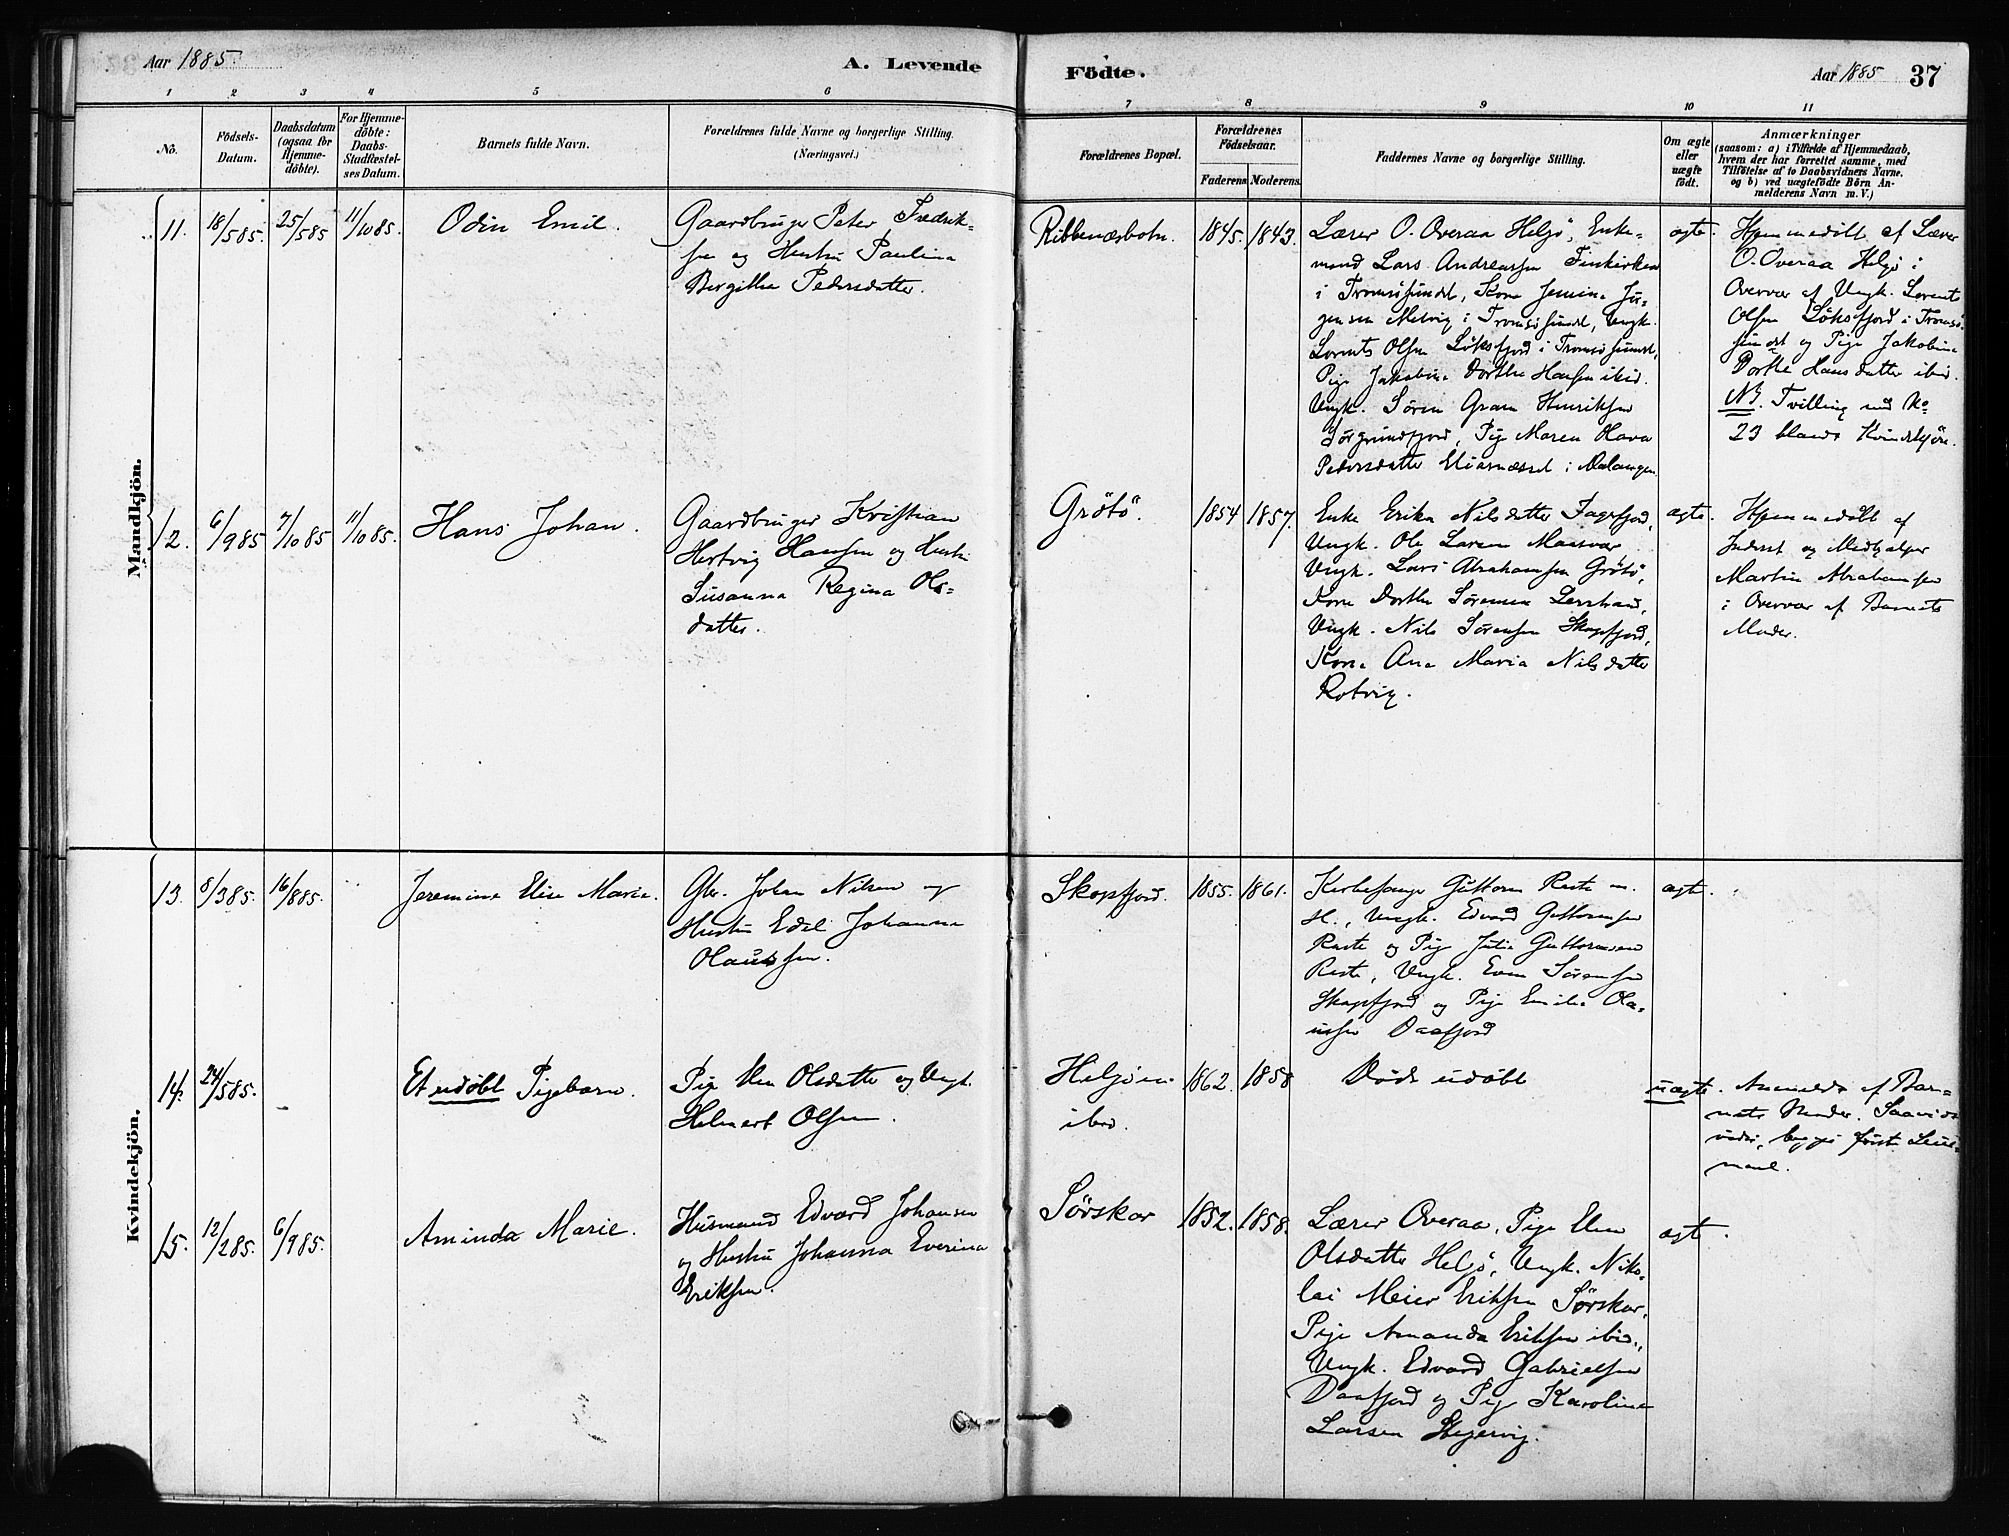 Aar 1885. A. Levende Födte. Aar 1885 37
1 2 3 4 5 6 7 8 9 10 11
No.
Födsels-
Datum.
Daabsdatum
(ogsaa for
Hjemme-
döbte).
For Hjemme-
döbte:
Daabs-
Stadfæstel-
ses Datum.
Barnets fulde Navn.
Forældrenes fulde Navne og borgerlige Stilling.
(Næringsvei.)
Forældrenes Bopæl.
Forældrenes
Födselsaar.
Faderens Moderens.
Faddernes Navne og borgerlige Stilling.
Om ægte
eller
uægte
födt.
Anmærkninger
(saasom: a) i Tilfælde af Hjemmedaab,
hvem der har forrettet samme, med
Tilföielse af to Daabsvidners Navne.
og b) ved uægtefödte Börn An-
melderens Navn m. V.)
Mandkjön.
11. 18/5 85. 25/5 85 11/10 85. Odin Emil.
Gaardbruger Peter Fredrik-
sen og Hustru Paulina
Birgitha Pedersdatter.
Ribbenæsbotn. 1845. 1843.
Lærer O. Overaa Helgö, Enke-
mand Lars Andreassen Finkirken
i Tromsösundet, Kone
Melvig i Tromsösundet, Ungk.
Lorents Olsen Löksfjord i Tromsösundet,
Pige Jakobine Dorthe Hansen ibid.
Ungk. Sören Gram Henriksen
Sörgrundfjord, Pige Maren Hava
Pedersdatter i Malangen.
ægte.
Hjemmedöbt af Lærer
O. Overaa Helgö i
Overvær af Ungk. Lorents
Olsen Löksfjord i Tromsö-
sundet og Pige Jakobine
Dorthe Hansdatter ibid.
NB. Tvilling med No
23 blandt Kvindekjön.
12. 6/9 85 7/10 85 11/10 85. Hans Johan.
Gaardbruger Kristian
Hertvig Hansen og Hustru
Susanna Regina Ols-
datter.
Grötö. 1854 1857.
Enke Erika Nilsdatter Fagerfjord,
Ungk. Ole Larsen Maasvær
Ungk. Lars Abrahamsen Grötö,
Kone Dorthe Sörensen
Ungk. Nils Sörensen Skogsfjord,
Kone Ane Maria Nilsdatter
Rotvig.
ægte.
Hjemmedöbt af
Inderst og Medhjælper
Martin Abrahamsen
i Overvær af Barnets
Moder.
Kvindekjön.
13. 8/3 85. 16/8 85. Jeremine Elise Marie.
Gbr. Johan Nilsen og
Hustru Edel Johanna
Olaussen.
Skogsfjord. 1855. 1861.
Kirkesanger Guttorm Reste m.
H., Ungk. Edvard Guttormsen
Reste og Pige Julie Guttormsen
Reste, Ungk. Even Sörensen
Skogsfjord og Pige Emilie Ola-
ussen Daafjord
ægte.
14. 24/5 85. - Et udöbt Pigebarn.
Pige Elen Olsdatter og Ungk.
Helmert Olsen.
Helgöen
ibid.
1862. 1858 Döde udöbt
uægte.
Anmeldt af Bar-
nets Moder. Saavidt
vides, begges förste Leier-
maal.
15. 12/2 85. 6/9 85. Aminda Marie.
Husmand Edvard Johansen
og Hustru Johanna Everina
Eriksen.
Sörskar 1852. 1858.
Lærer Overaa, Pige Elen
Olsdatter Helgö, Ungk. Niko-
lai Meier Eriksen Sörskar,
Pige Amanda Eriksen ibid.,
Ungk. Edvard Gabrielsen
Daafjord og Pige Karoline
Larsen
ægt.